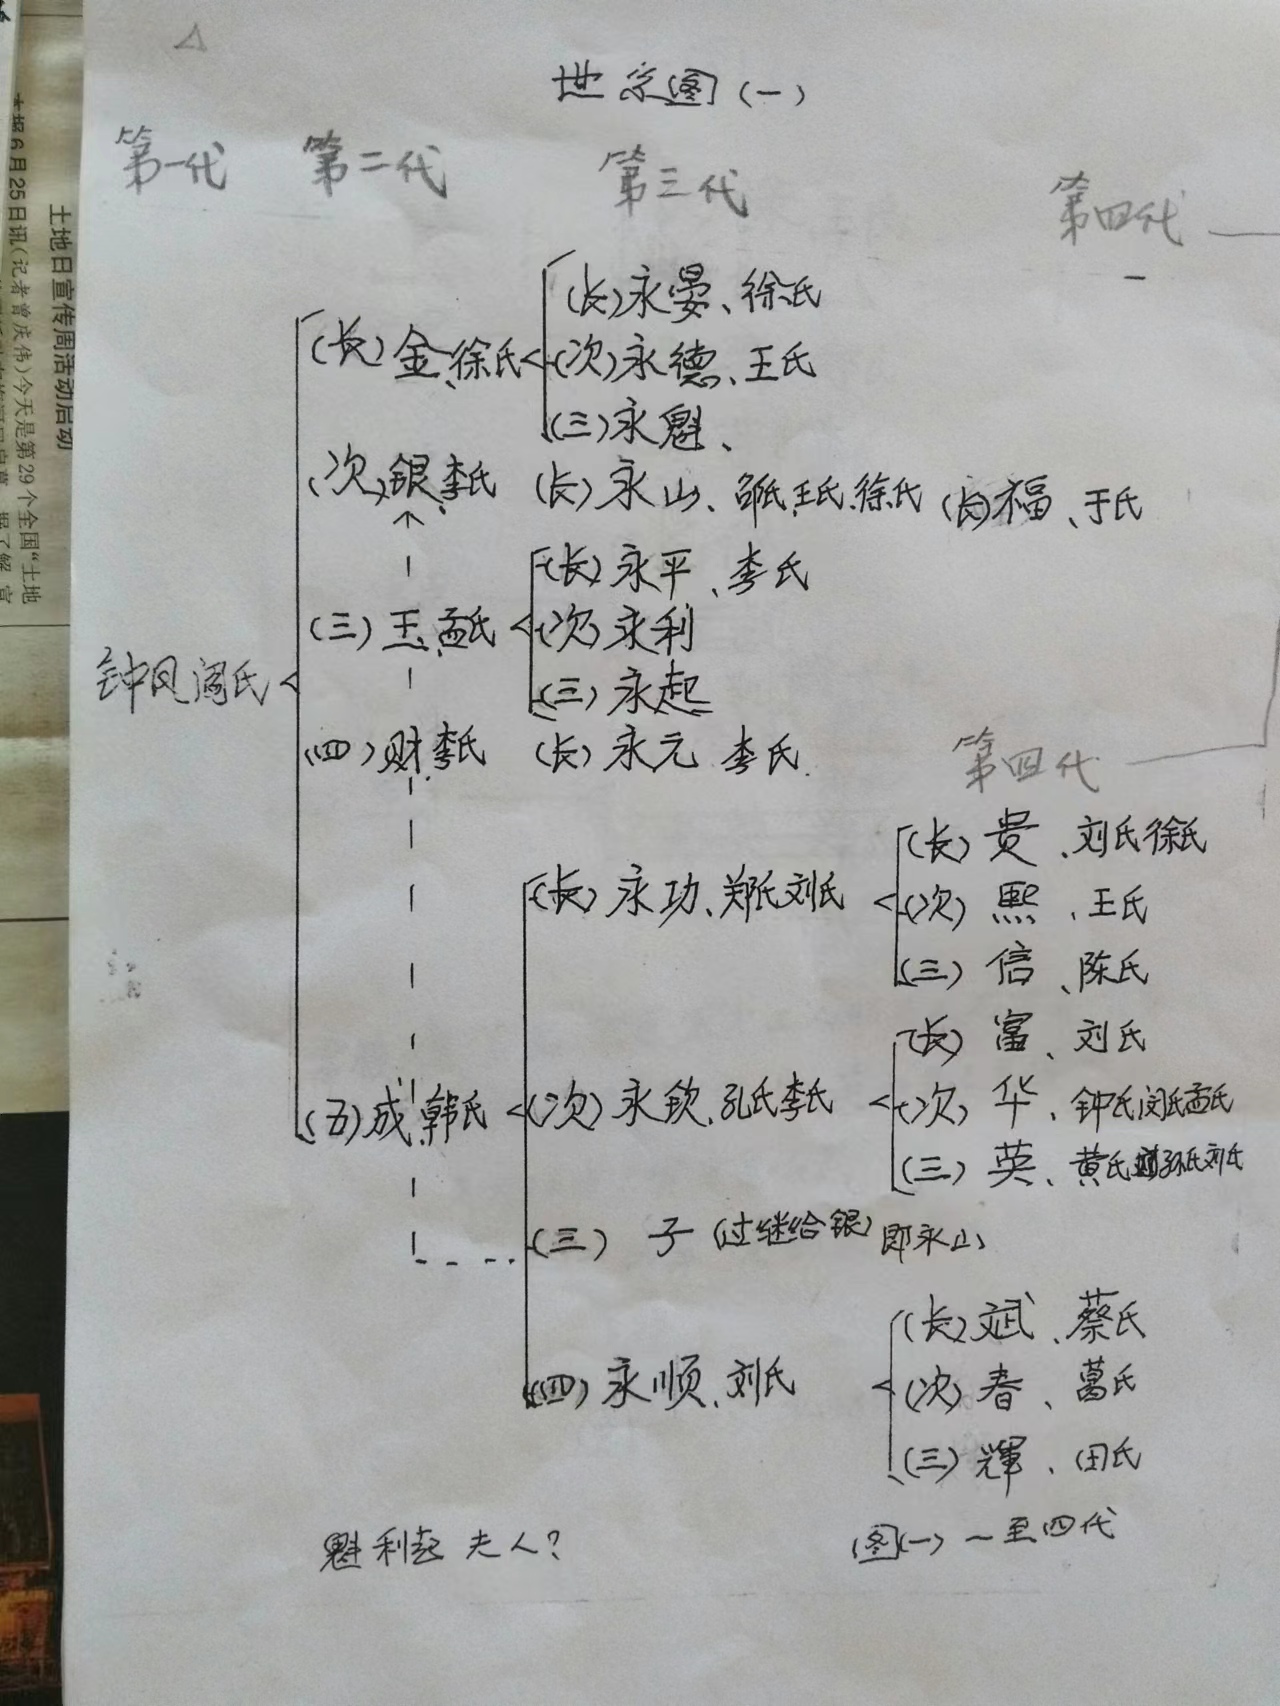 地宗图(一)
第一代 第二代 第三代 第四代
(长)永晏、徐氏
(长)金、徐氏
(次)永德、王氏
(三)永魁、
(次)银、李氏 (长)永山、邵氏、王氏、徐氏 (长)福、于氏
(长)永平、李氏
(三)玉、孟氏
(次)永利
(三)永起
钟凤阎氏
(四)财、李氏 (长)永元 李氏
第四代
(长)贵、刘氏徐氏
(长)永功、郑氏刘氏
(次)熙、王氏
(三)信、陈氏
(长)富、刘氏
(五)成、韩氏 (次)永钦、孔氏李氏 (次)华、钟氏闵氏孟氏
(三)英、黄氏孙氏刘氏
(三) 子(过继给银)即永山
(长)斌、蔡氏
(四)永顺、刘氏 (次)春、葛氏
(三)辉、田氏
魁利起夫人?
图(一)一至四代
土地日宣传周活动启动
本报6月25日讯(记者曾庆伟)今天是第29个全国"土地